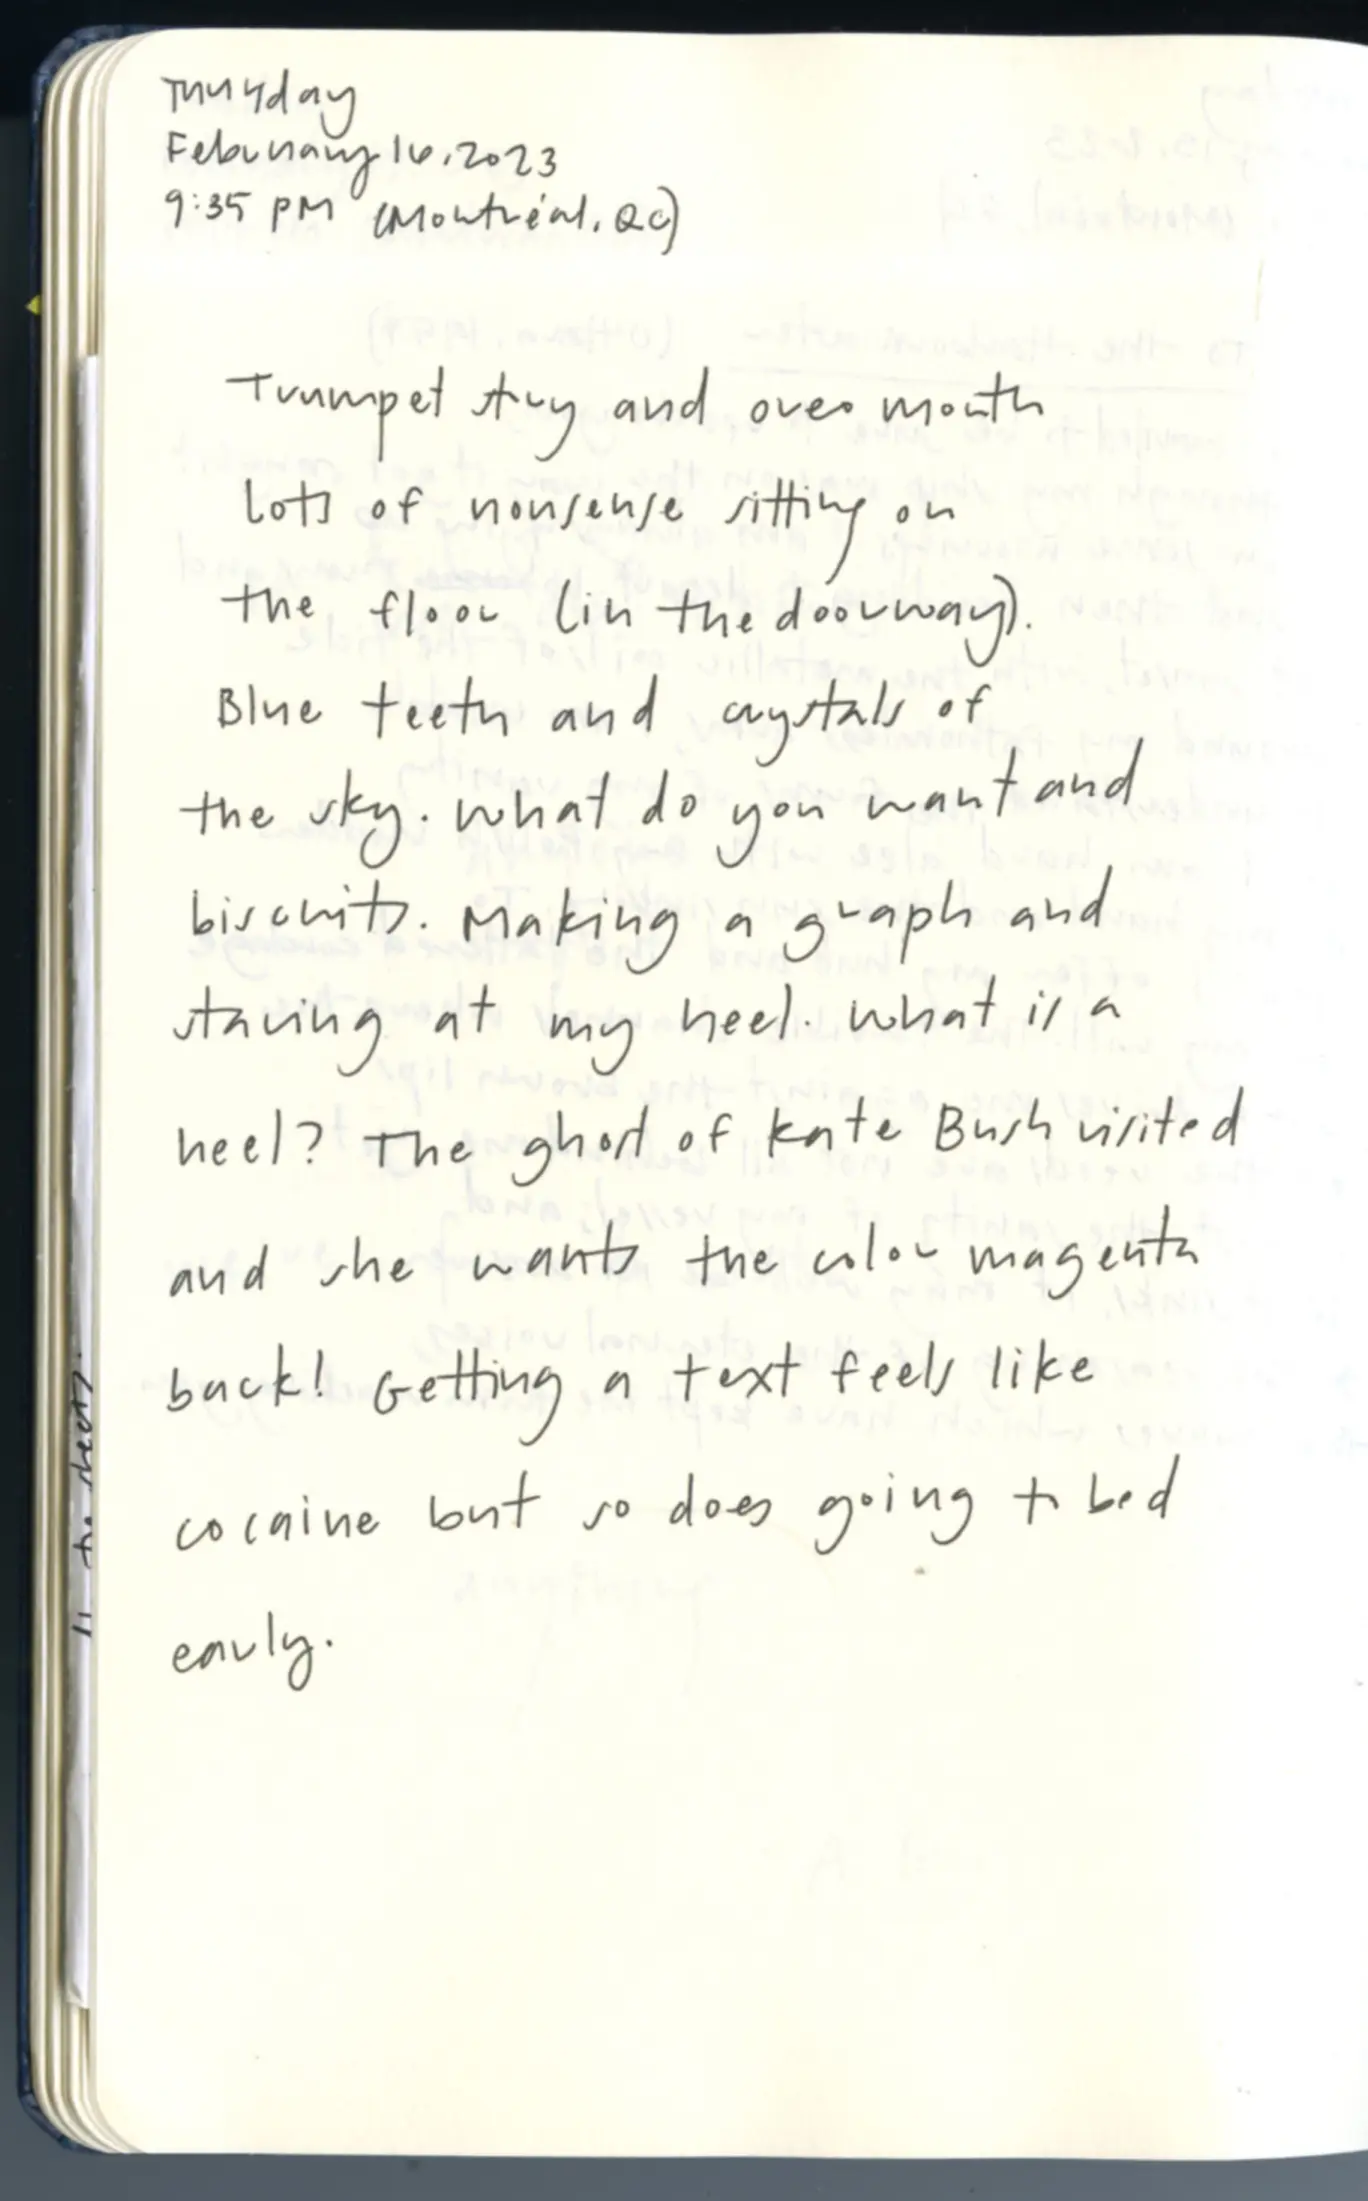 Thursday
February 16, 2023
9:35 PM (Montréal, QC)
Trumpet and over mouth
Lots of nonsense sitting on
the floor (in the doorway).
Blue teeth and crystals of
the sky. What do you want and
biscuits. Making a graph and
staring at my heel. What is a
heel? The ghost of Kate Bush visited
and she wants the color magenta
back! Getting a text feels like
cocaine but so does going to bed
early.